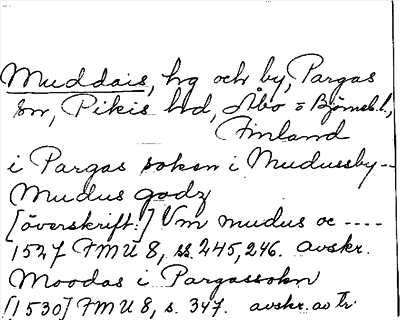 Muddais, hg och by, Pargas
sn, Pikis hd, Åbo = Björneb.l,
Finland
i Pargas soken i Mudussby--
Mudus godz
[överskrift:] Um mudus oc ----
1527 FMU 8, ss. 245, 246. avskr.
Moodas i Pargassokn
[1530] FMU 8, s. 347. avskr. av tr.